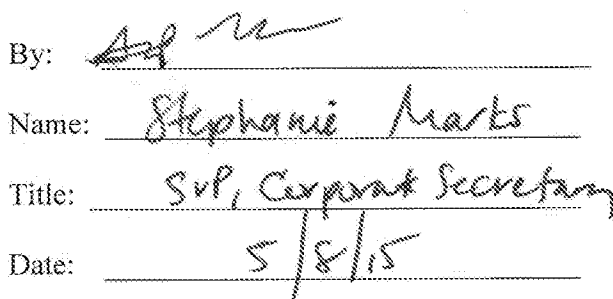 By:
Name: Stephanie Marts
Title: SVP, Corporate Secretary
Date: 5/8/15